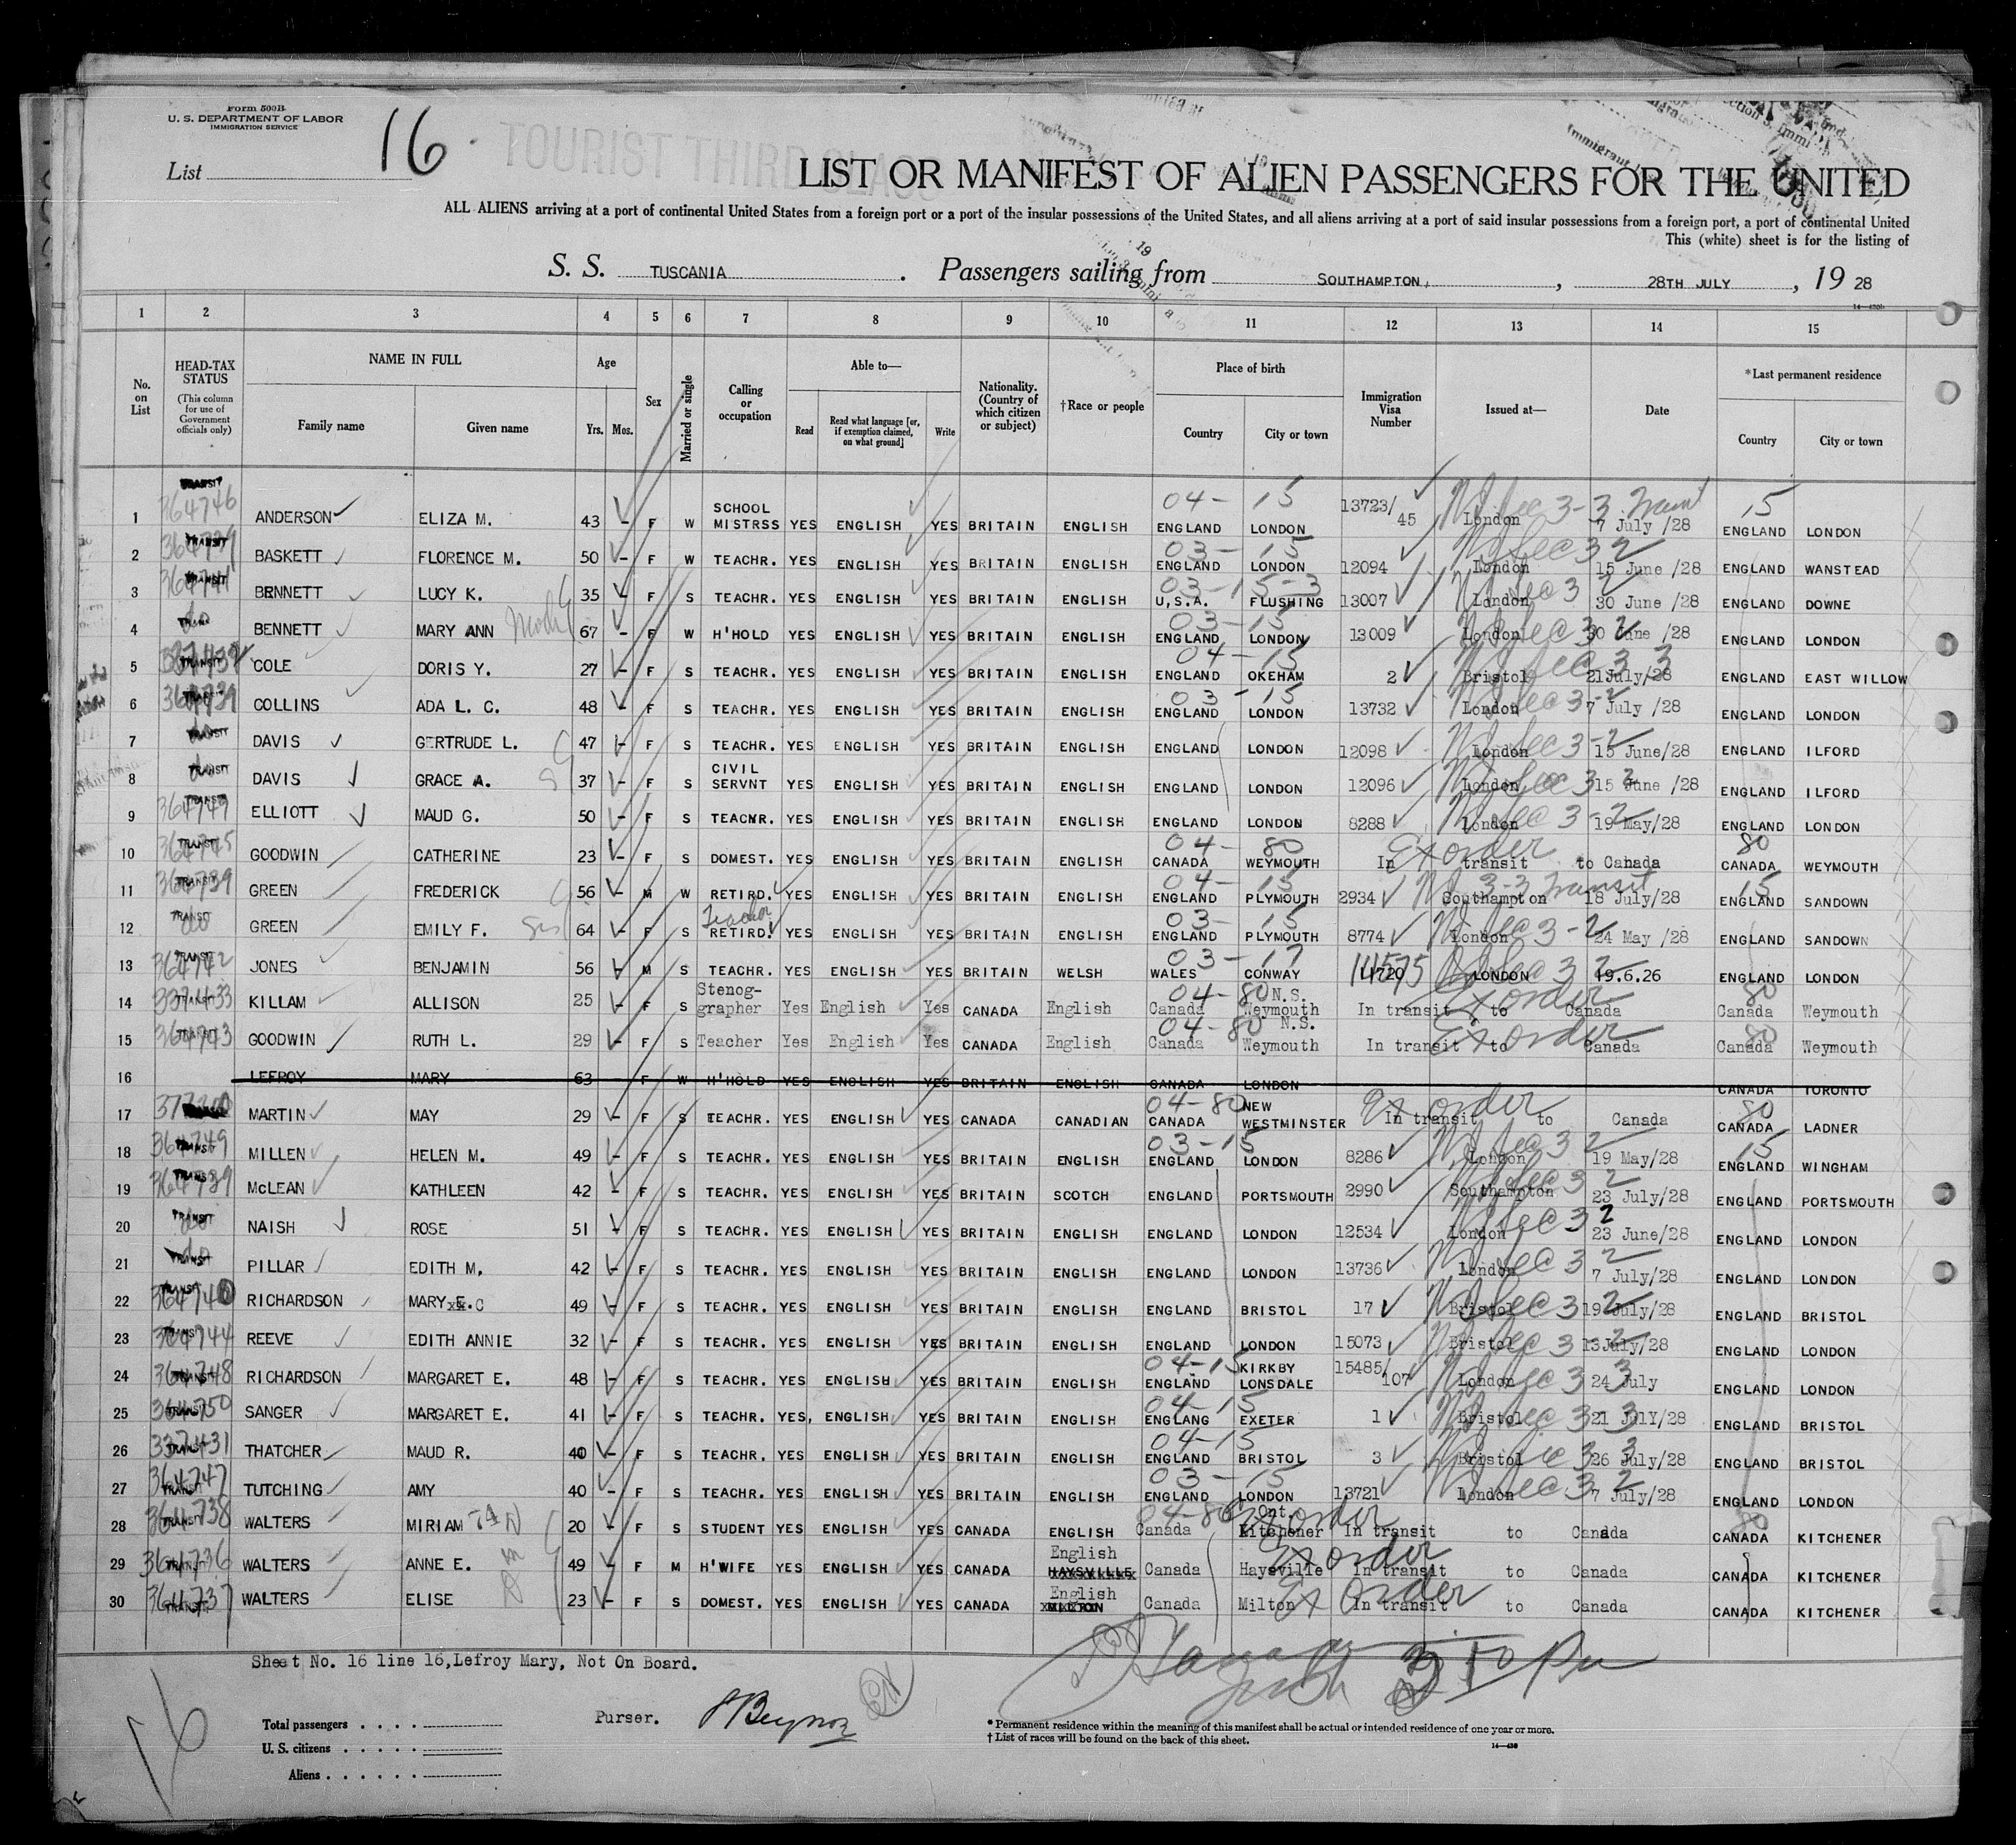 Form 500B
U. S. DEPARTMENT OF LABOR
IMMIGRATION SERVICE
List 16
TOURIST THIRD CLASS
LIST OR MANIFEST OF ALIEN PASSENGERS FOR THE UNITED
ALL ALIENS arriving at a port of continental United States from a foreign port or a port of the insular possessions of the United States, and all aliens arriving at a port of said insular possessions from a foreign port, a port of continental United
This (white) sheet is for the listing of
S. S. TUSCANIA. Passengers sailing from SOUTHAMPTON, 28TH JULY, 19 28
1 2 3 4 5 6 7 8 9 10 11 12 13 14 15
No. on List
HEAD-TAX STATUS (This column for use of Government officials only)
NAME IN FULL Family name Given name
Age Yrs. Mos.
Sex
Married or single
Calling or occupation
Able to— Read Read what language [or, if exemption claimed, on what ground] Write
Nationality. (Country of which citizen or subject)
†Race or people
Place of birth Country City or town
Immigration Visa Number
Issued at—
Date
*Last permanent residence Country City or town
1 TRANSIT 364746 ANDERSON ELIZA M. 43 – F W SCHOOL MISTRSS YES ENGLISH YES BRITAIN ENGLISH 04- 15 ENGLAND LONDON 13723/45 London 7 July /28 15 ENGLAND LONDON
2 TRANSIT 364739 BASKETT FLORENCE M. 50 – F W TEACHR. YES ENGLISH YES BRITAIN ENGLISH 03- 15 ENGLAND LONDON 12094 London 15 June /28 ENGLAND WANSTEAD
3 TRANSIT 364741 BENNETT LUCY K. 35 – F S TEACHR. YES ENGLISH YES BRITAIN ENGLISH 03-15-3 U.S.A. FLUSHING 13007 London 30 June /28 ENGLAND DOWNE
4 do BENNETT MARY ANN 67 – F W H'HOLD YES ENGLISH YES BRITAIN ENGLISH 03-15 ENGLAND LONDON 13009 London 30 June /28 ENGLAND LONDON
5 TRANSIT COLE DORIS Y. 27 – F S TEACHR. YES ENGLISH YES BRITAIN ENGLISH 04-15 ENGLAND OKEHAM 2 Bristol 21July/28 ENGLAND EAST WILLOW
6 TRANSIT 364739 COLLINS ADA L. C. 48 – F S TEACHR. YES ENGLISH YES BRITAIN ENGLISH 03-15 ENGLAND LONDON 13732 London 7 July /28 ENGLAND LONDON
7 TRANSIT do DAVIS GERTRUDE L. 47 – F S TEACHR. YES ENGLISH YES BRITAIN ENGLISH ENGLAND LONDON 12098 London 15 June/28 ENGLAND ILFORD
8 TRANSIT do DAVIS GRACE A. 37 – F S CIVIL SERVNT YES ENGLISH YES BRITAIN ENGLISH ENGLAND LONDON 12096 London 15 June /28 ENGLAND ILFORD
9 TRANSIT 364749 ELLIOTT MAUD G. 50 – F S TEACHR. YES ENGLISH YES BRITAIN ENGLISH ENGLAND LONDON 8288 London 19 May/28 ENGLAND LONDON
10 TRANSIT 364745 GOODWIN CATHERINE 23 – F S DOMEST. YES ENGLISH YES BRITAIN ENGLISH 04- 80 CANADA WEYMOUTH In transit to Canada Ex order 80 CANADA WEYMOUTH
11 TRANSIT 364739 GREEN FREDERICK 56 – M W RETIRD. YES ENGLISH YES BRITAIN ENGLISH 04- 15 ENGLAND PLYMOUTH 2934 Southampton 3-3 Transit 18 July/28 15 ENGLAND SANDOWN
12 TRANSIT do GREEN EMILY F. Sis 64 – F S Teacher RETIRD. YES ENGLISH YES BRITAIN ENGLISH 03- 15 ENGLAND PLYMOUTH 8774 London 24 May /28 ENGLAND SANDOWN
13 TRANSIT 364742 JONES BENJAMIN 56 – M S TEACHR. YES ENGLISH YES BRITAIN WELSH 03-17 WALES CONWAY 14575 LONDON 19.6.26 ENGLAND LONDON
14 TRANSIT 337433 KILLAM ALLISON 25 – F S Stenog-grapher Yes English Yes CANADA English 04-80 Canada N.S. Weymouth In transit to Canada Ex order 80 Canada Weymouth
15 TRANSIT 364743 GOODWIN RUTH L. 29 – F S Teacher Yes English Yes CANADA English 04-80 Canada N.S. Weymouth In transit to Canada Ex order 80 Canada Weymouth
16 LEFROY MARY 63 – F W H'HOLD YES ENGLISH YES BRITAIN ENGLISH CANADA LONDON CANADA TORONTO
17 MARTIN MAY 29 – F S TEACHR. YES ENGLISH YES CANADA CANADIAN 04-80 CANADA NEW WESTMINSTER In transit to Canada Ex order 80 CANADA LADNER
18 TRANSIT 364749 MILLEN HELEN M. 49 – F S TEACHR. YES ENGLISH YES BRITAIN ENGLISH 03-15 ENGLAND LONDON 8286 London 19 May/28 15 ENGLAND WINGHAM
19 TRANSIT 364739 McLEAN KATHLEEN 42 – F S TEACHR. YES ENGLISH YES BRITAIN SCOTCH ENGLAND PORTSMOUTH 2990 Southampton 23 July/28 ENGLAND PORTSMOUTH
20 TRANSIT do NAISH ROSE 51 – F S TEACHR. YES ENGLISH YES BRITAIN ENGLISH ENGLAND LONDON 12534 London 23 June/28 ENGLAND LONDON
21 TRANSIT do PILLAR EDITH M. 42 – F S TEACHR. YES ENGLISH YES BRITAIN ENGLISH ENGLAND LONDON 13736 London 7 July/28 ENGLAND LONDON
22 TRANSIT 364740 RICHARDSON MARY E.C 49 – F S TEACHR. YES ENGLISH YES BRITAIN ENGLISH ENGLAND BRISTOL 17 Bristol 19 July/28 ENGLAND BRISTOL
23 TRANSIT 364744 REEVE EDITH ANNIE 32 – F S TEACHR. YES ENGLISH YES BRITAIN ENGLISH ENGLAND LONDON 15073 Bristol 13July/28 ENGLAND LONDON
24 TRANSIT 364748 RICHARDSON MARGARET E. 48 – F S TEACHR. YES ENGLISH YES BRITAIN ENGLISH 04-15 ENGLAND KIRKBY LONSDALE 15485/107 London 24 July ENGLAND LONDON
25 TRANSIT 364750 SANGER MARGARET E. 41 – F S TEACHR. YES, ENGLISH YES BRITAIN ENGLISH 04-15 ENGLANG EXETER 1 Bristol 21 JulY/28 ENGLAND BRISTOL
26 TRANSIT 337431 THATCHER MAUD R. 40 – F S TEACHR. YES ENGLISH YES BRITAIN ENGLISH 04-15 ENGLAND BRISTOL 3 Bristol 26 July/28 ENGLAND BRISTOL
27 TRANSIT 364747 TUTCHING AMY 40 – F S TEACHR. YES ENGLISH YES BRITAIN ENGLISH 03-15 ENGLAND LONDON 13721 London 7 July/28 ENGLAND LONDON
28 TRANSIT 364738 WALTERS MIRIAM 20 – F S STUDENT YES ENGLISH YES CANADA ENGLISH 04-80 Canada Ont. Kitchener In transit to Canada Ex order 80 CANADA KITCHENER
29 TRANSIT 364736 WALTERS ANNE E. 49 – F M H'WIFE YES ENGLISH YES CANADA English HAYSVILLE Canada Haysville In transit to Canada Ex order CANADA KITCHENER
30 TRANSIT 364737 WALTERS ELISE 23 – F S DOMEST. YES ENGLISH YES CANADA English MILTON Canada Milton In transit to Canada Ex Order CANADA KITCHENER
Sheet No. 16 line 16,Lefroy Mary, Not On Board.
16
Total passengers . . . .
U. S. citizens . . . . .
Aliens . . . . . .
Purser.
* Permanent residence within the meaning of this manifest shall be actual or intended residence of one year or more.
† List of races will be found on the back of this sheet.